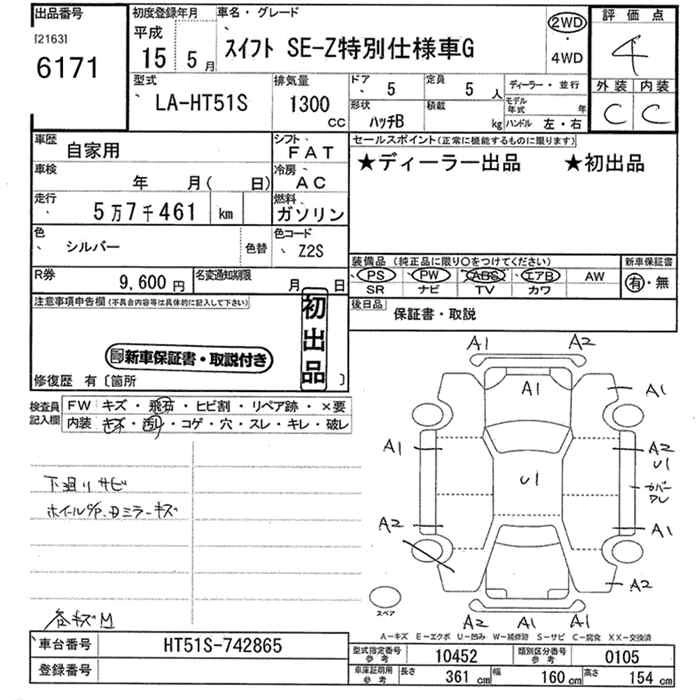 出品番号 初度登録年月 車名・グレード 2WD 評価点
[2163] 平成
6171 15年 5月 スイフト SE-Z特別仕様車G ・ 4
4WD
型式 排気量 ドア 定員 ディーラー・並行 外装 内装
LA-HT51S 1300 CC 、5 5人 モデル年式 年 C C
形状 ハッチB 積載 kg ハンドル 左・右
車歴 自家用 シフト、 FAT セールスポイント(正常に機能するものに限ります)
★ディーラー出品 ★初出品
車検 年 月( 日) 冷房、 AC
走行 5万7千461 km 燃料、 ガソリン
色 シルバー 色替 色コード 、Z2S
装備品(純正品に限り○をつけてください) 新車保証書
R券 9,600円 名変通知期限 月 日
PS PW ABS エアB AW 有・無
SR ナビ TV カワ
注意事項申告欄(不具合内容等は具体的に記入して下さい) 初出品
後日品 保証書・取説
新車保証書・取説付き
修復歴 有〔箇所 〕
検査員記入欄 FW キズ・飛石・ヒビ割・リペア跡・×要
内装 キズ・汚れ・コゲ・穴・スレ・キレ・破レ
A1 A2
A1 A1
A1 A2
U1 U1
カバー
下廻りサビ
ホイルC/P.Dミラーキズ
A2 A1
A2
スペア
A2 A1 A1
キズM
A-キズ E-エクボ U-凹み W-補修跡 S-サビ C-腐食 XX-交換済
車台番号 HT51S-742865
型式指定番号参考 10452 類別区分番号参考 0105
登録番号
車庫証明用参考 長さ 361cm 幅 160cm 高さ 154cm